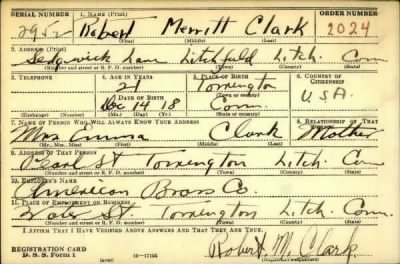 SERIAL NUMBER 1. NAME (Print) ORDER NUMBER
2952 Robert Merritt Clark 2024
(First) (Middle) (Last)
2. ADDRESS (Print)
Sedgwick Lane Litchfield Litch. Conn
(Number and street or R. F. D. number) (Town) (County) (State)
3. TELEPHONE 4. AGE IN YEARS 5. PLACE OF BIRTH 6. COUNTRY OF CITIZENSHIP
21 Torrington
DATE OF BIRTH (Town or county)
Dec 14 18 Conn. U.S.A.
(Exchange) (Number) (Mo.) (Day) (Yr.) (State or country)
7. NAME OF PERSON WHO WILL ALWAYS KNOW YOUR ADDRESS 8. RELATIONSHIP OF THAT PERSON
Mrs Emma Clark Mother
(Mr., Mrs., Miss) (First) (Middle) (Last)
9. ADDRESS OF THAT PERSON
Pearl St Torrington Litch. Conn
(Number and street or R. F. D. number) (Town) (County) (State)
10. EMPLOYER'S NAME
American Brass Co.
11. PLACE OF EMPLOYMENT OR BUSINESS
Water St. Torrington Litch. Conn.
(Number and street or R. F. D. number) (Town) (County) (State)
I AFFIRM THAT I HAVE VERIFIED ABOVE ANSWERS AND THAT THEY ARE TRUE.
REGISTRATION CARD
D. S. S. Form 1 (over) Robert M. Clark
(Registrant's signature)